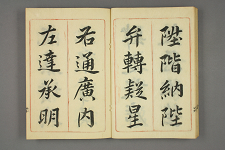 陞階納陛
弁轉疑星
右通廣内
左達承明